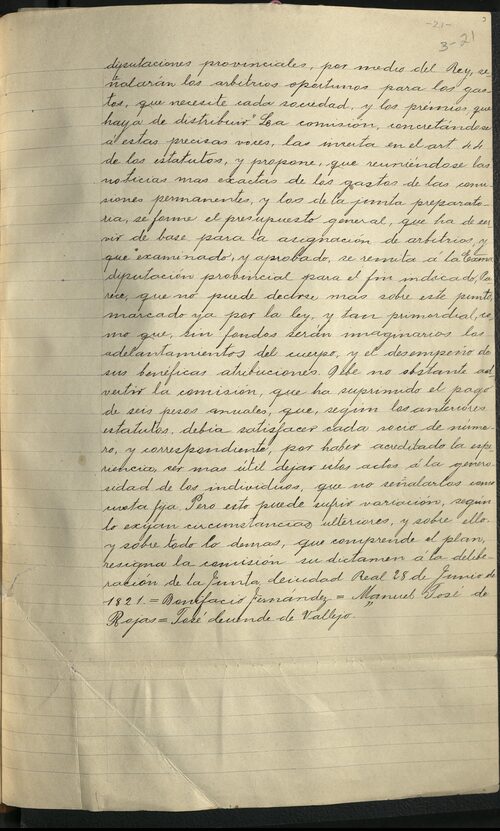 -21-
3-21
diputaciones provinciales, por medio del Rey, se
ñalarán los arbitrios oportunos para los gas-
tos, que necesite cada sociedad, y los prémios que
haya de distribuir. La comisión, concretándose
á estas precisas voces, las inserta en el art 44
de los estatutos, y propone, que reuniéndose las
noticias mas exactas de los gastos de las comi
siones permanentes, y los de la junta preparato-
ria, se forme el presupuesto general, que ha de ser
vir de base para la asignación de arbitrios, y
que examinado, y aprobado, se remita á la Exma
diputación provincial para el fin indicado. Pa
rece, que no puede decirse mas sobre este punto,
marcado ya por la ley, y tan primordial, co
mo que, sin fondos serán imaginarios los
adelantamientos del cuerpo, y el desempeño de
sus benéficas atribuciones. Debe no obstante ad
vertir la comisión, que ha suprimido el pago
de seis pesos anuales, que, según los anteriores
estatutos, debia satisfacer cada socio de núme-
ro, y correspondiente, por haber acreditado la espe
riencia, ser mas útil dejar estos actos á la genero
sidad de los individuos, que no señalarlos como
cuota fija. Pero esto puede sufrir variación, según
lo exijan circunstancias ulteriores, y sobre ello.
y sobre todo lo demas, que comprende el plan,
resigna la comisión su dictamen á la delibe
ración de la Junta, deciudad Real 28 de Junio de
1821. = Bonifacio Fernandez = Manuel José de
Rojas = José de                de Vallejo.